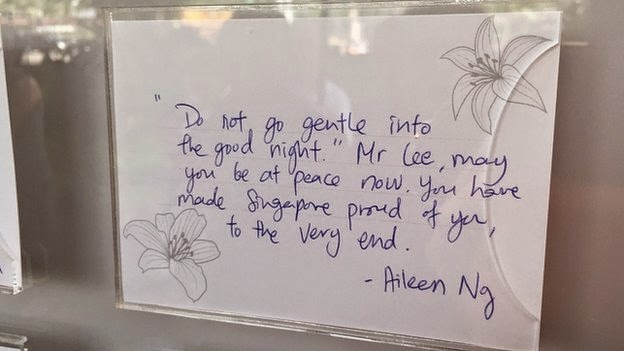 "Do not go gentle into
the good night." Mr Lee, may
you be at peace now. You have
made Singapore proud of you,
to the very end.
- Aileen Ng